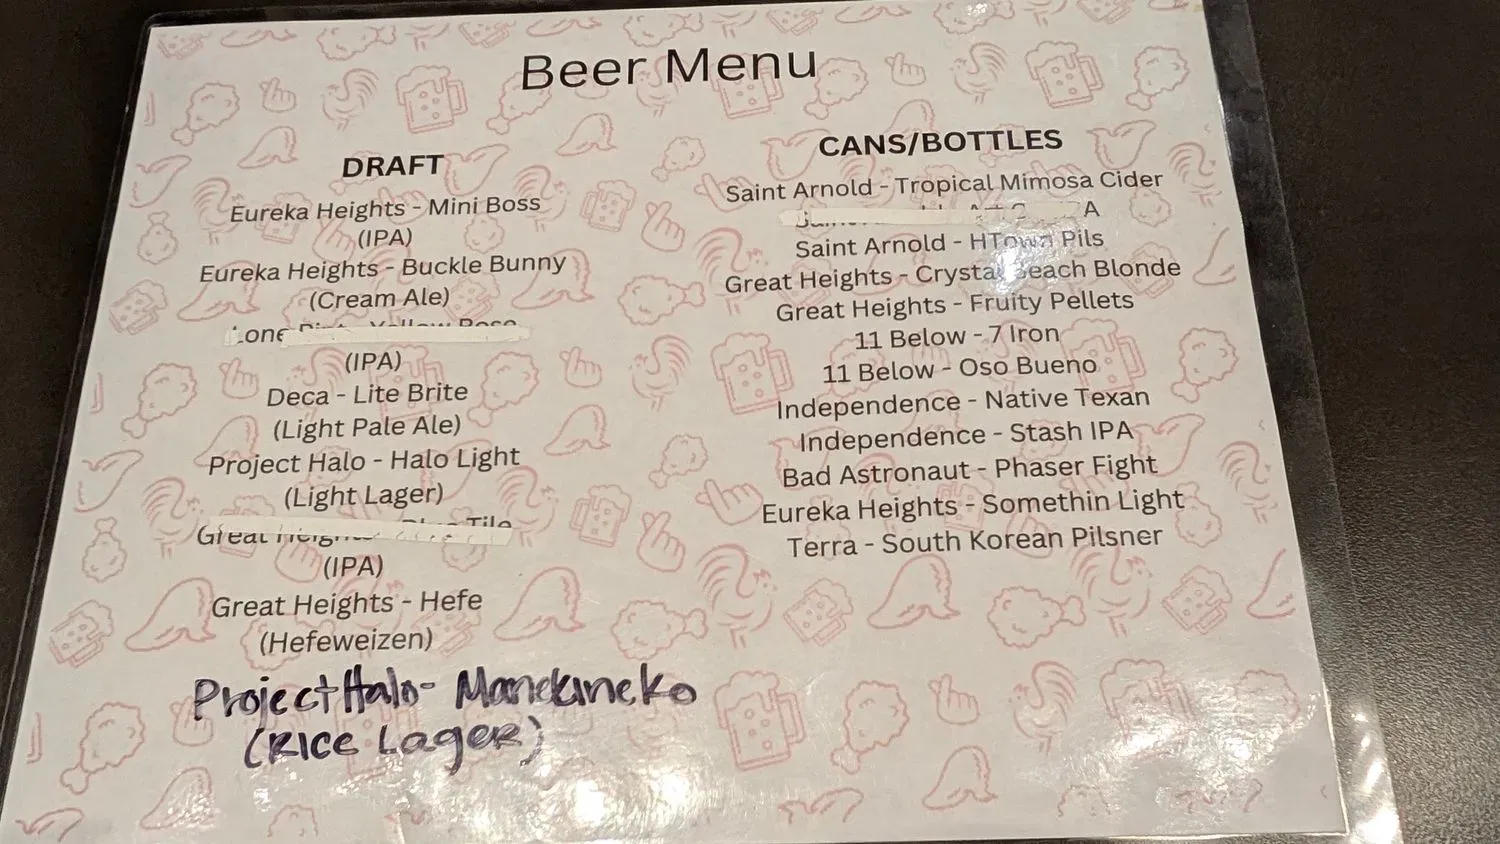 Beer Menu
DRAFT
Eureka Heights - Mini Boss
(IPA)
Eureka Heights - Buckle Bunny
(Cream Ale)
Lone
(IPA)
Deca - Lite Brite
(Light Pale Ale)
Project Halo - Halo Light
(Light Lager)
Great Heights Tile
(IPA)
Great Heights - Hefe
(Hefeweizen)
Project Halo -
(Rice Lager)
CANS/BOTTLES
Saint Arnold - Tropical Mimosa Cider
Saint Arnold - HTown Pils
Great Heights - Crystal Beach Blonde
Great Heights - Fruity Pellets
11 Below - 7 Iron
11 Below - Oso Bueno
Independence - Native Texan
Independence - Stash IPA
Bad Astronaut - Phaser Fight
Eureka Heights - Somethin Light
Terra - South Korean Pilsner